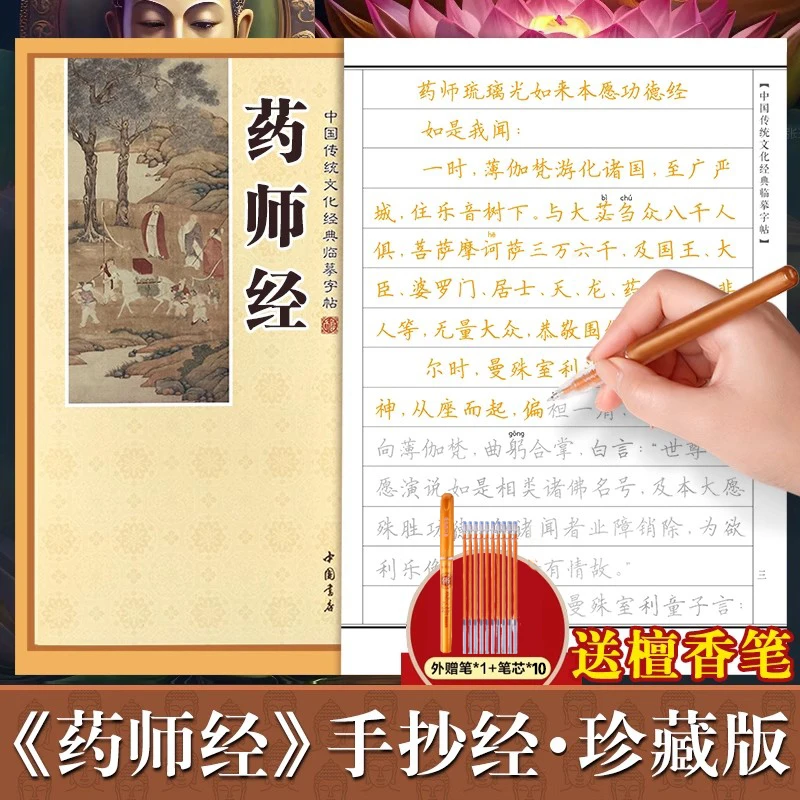 药师经
中国传统文化经典临摹字帖
中国书店
【中国传统文化经典临摹字帖】
药师琉璃光如来本愿功德经
如是我闻：
一时，薄伽梵游化诸国，至广严
bì chú
城，住乐音树下。与大苾刍众八千人
hē
俱，菩萨摩诃萨三万六千，及国王、大
臣、婆罗门、居士、天、龙、药
人等，无量大众，恭敬围
尔时，曼殊室利
神，从座而起，偏袒一肩，
gōng
向薄伽梵，曲躬合掌，白言：“世尊
愿演说如是相类诸佛名号，及本大愿
殊胜功德，诸闻者业障销除，为欲
利乐有情故。”
曼殊室利童子言：
三
外赠笔*1+笔芯*10
送檀香笔
《药师经》手抄经·珍藏版